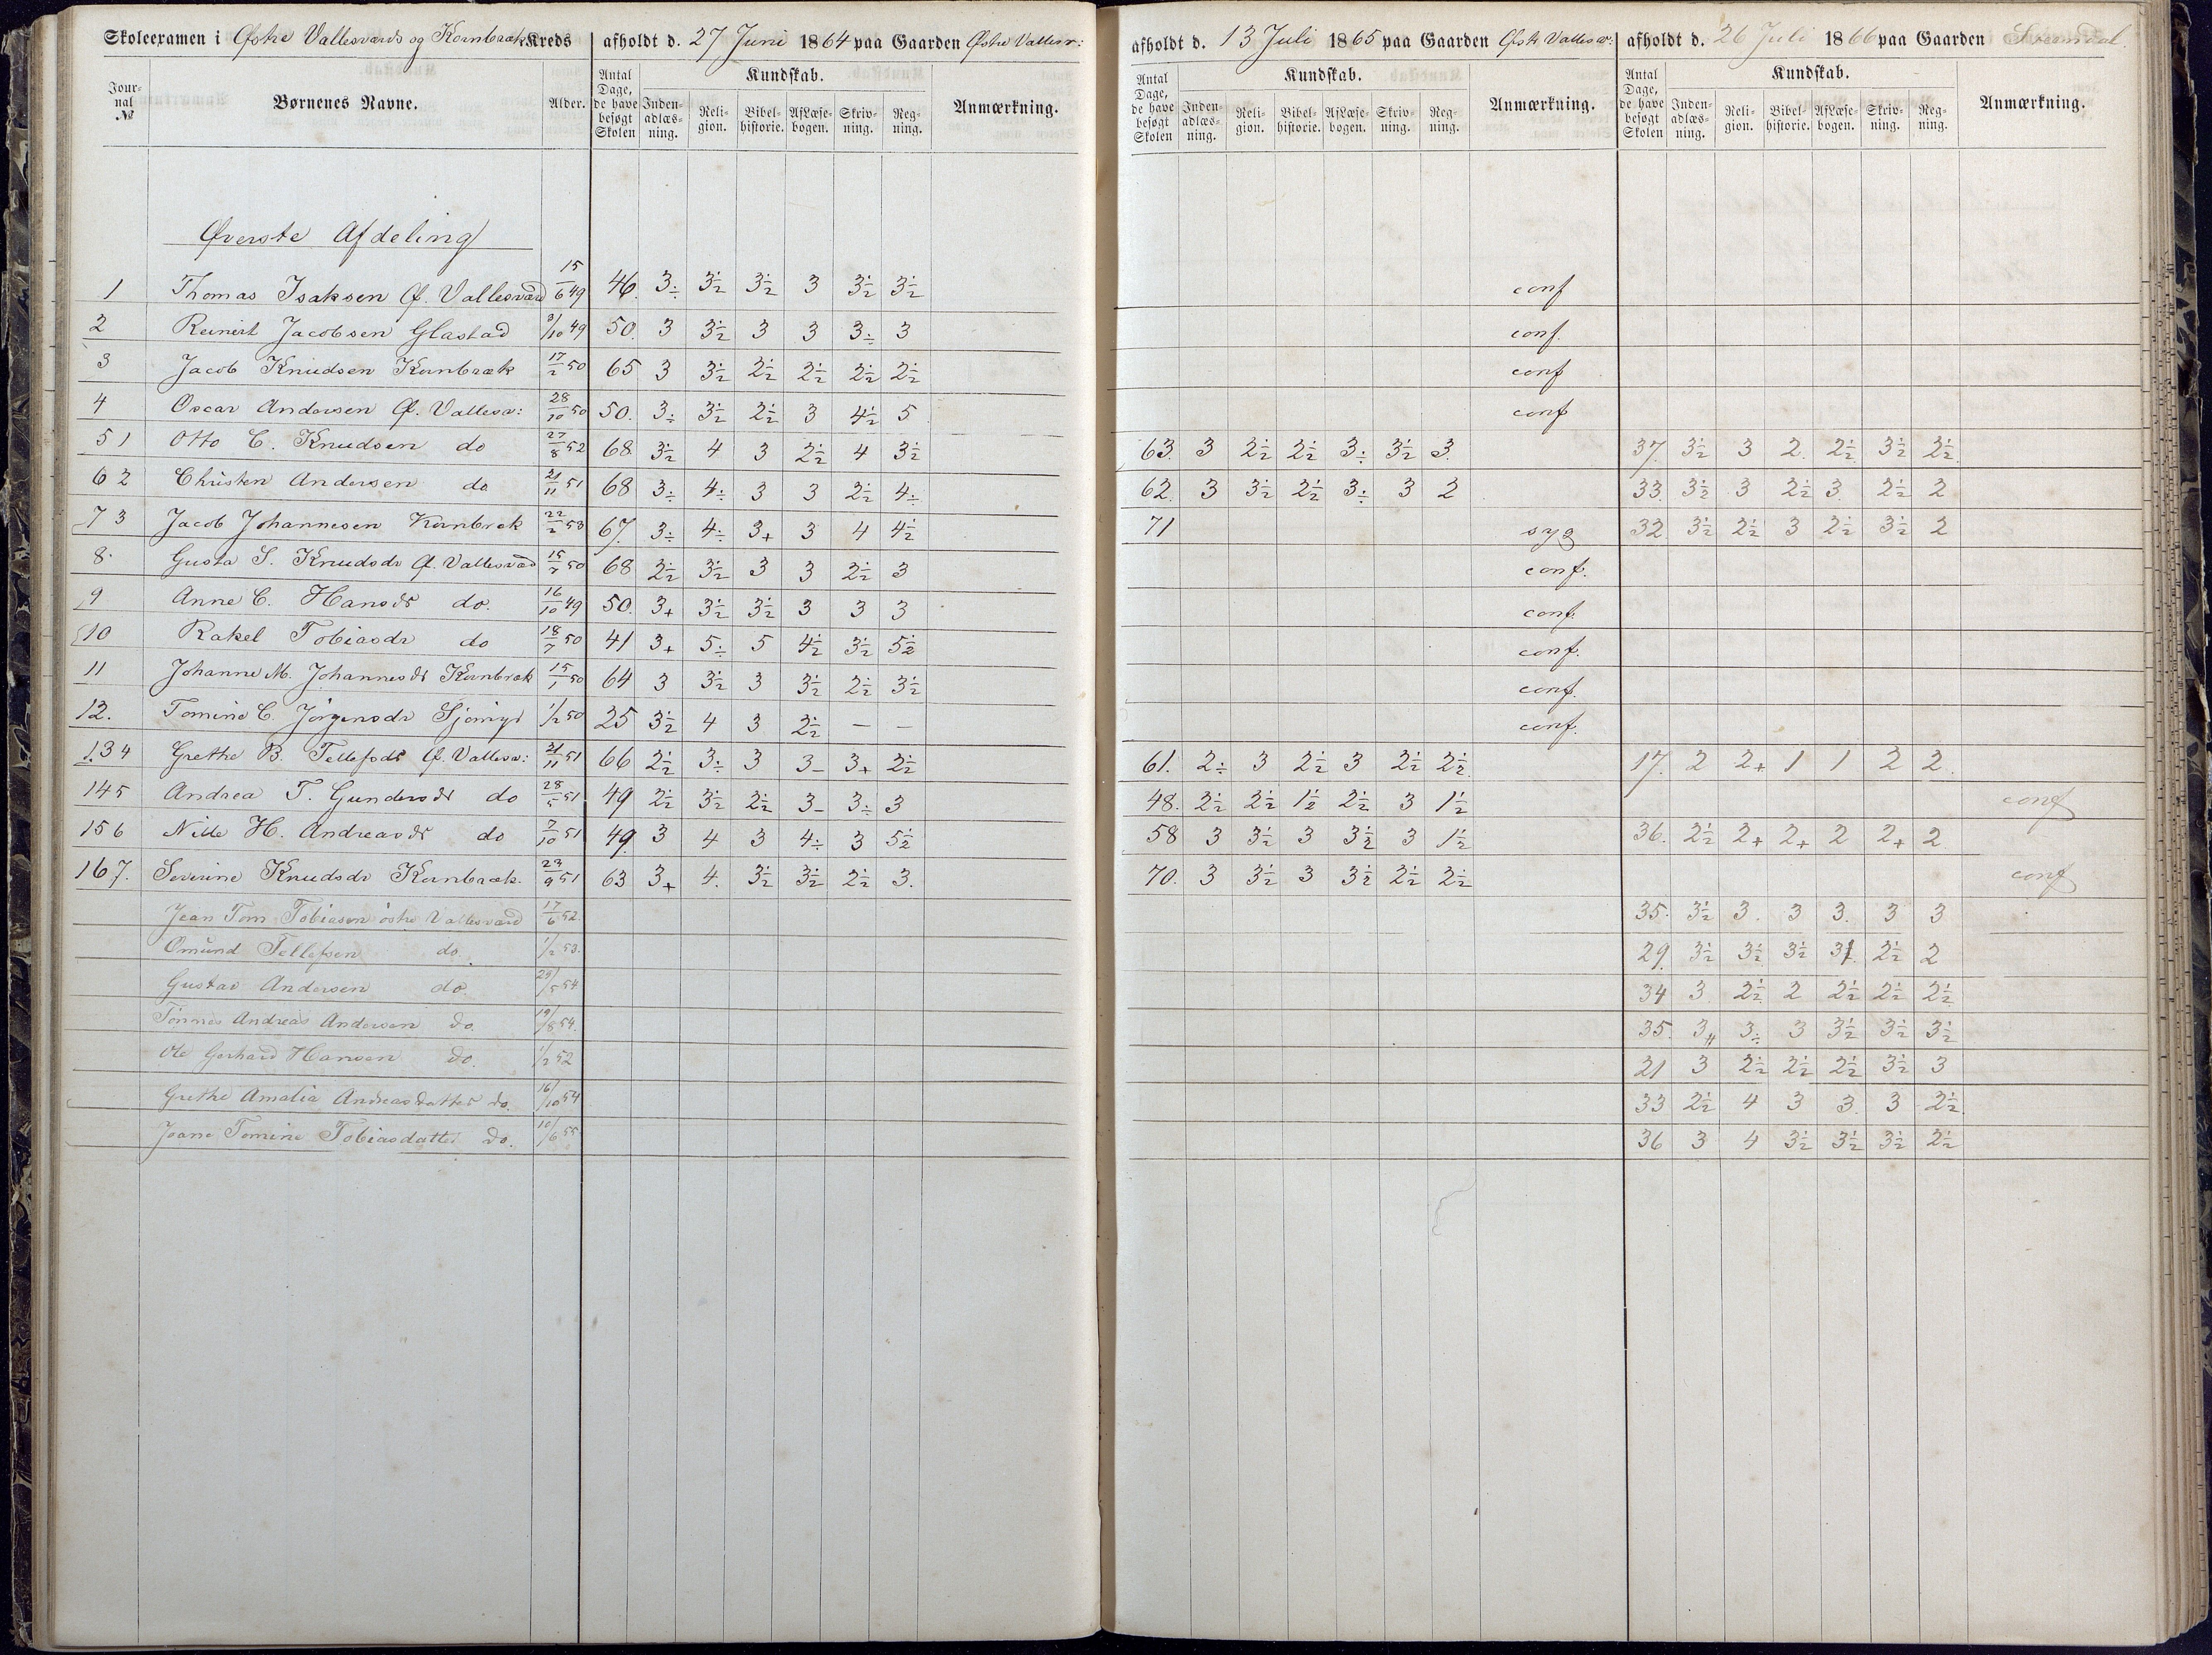 Skoleexamen i Østre Vallesværds og Kornbræk Kreds afholdt d. 27 Juni 1864 paa Gaarden Østre Vallesv: afholdt d. 13 Juli 1865 paa Gaarden Østr Vallesv: afholdt d. 26 Juli 1866 paa Gaarden
Journal № Børnenes Navne. Alder. Antal Dage, de have besøgt Skolen Kundskab. Indenadlæsning. Religion. Bibelhistorie. Af Læsebogen. Skrivning. Regning. Anmærkning. Antal Dage, de have besøgt Skolen Kundskab. Indenadlæsning. Religion. Bibelhistorie. Af Læsebogen. Skrivning. Regning. Anmærkning. Antal Dage, de have besøgt Skolen Kundskab. Indenadlæsning. Religion. Bibelhistorie. Af Læsebogen. Skrivning. Regning. Anmærkning.
Øverste Afdeling
1 Thomas Isaksen Ø. Vallesværd 15/6 49 46. 3÷ 3½ 3½ 3 3½ 3½ conf
2 Reinert Jacobsen Glastad 3/10 49 50. 3 3½ 3 3 3÷ 3 conf.
3 Jacob Knudsen Kornbræk 17/2 50 65 3 3½ 2½ 2½ 2½ 2½ conf
4 Oscar Andersen Ø. Vallesv: 28/10 50 50. 3÷ 3½ 2½ 3 4½ 5 conf
5 1 Otto C. Knudsen do 27/8 52 68. 3½ 4 3 2½ 4 3½ 63. 3 2½ 2½ 3÷ 3½ 3. 37. 3½ 3 2. 2½ 3½ 2½
6 2 Christen Andersen do 21/11 51 68 3÷ 4÷ 3 3 2½ 4÷ 62. 3 3½ 2½ 3÷ 3 2 33. 3½ 3 2½ 3. 2½ 2
7 3 Jacob Johannesen Kornbræk 22/2 53 67. 3÷ 4÷ 3+ 3 4 4½ 71 syg 32 3½ 2½ 3 2½ 3½ 2
8 Gusta S. Knudsdr Ø. Vallesværd 15/7 50 68 2½ 3½ 3 3 2½ 3 conf.
9 Anne C. Hansdr do. 16/10 49 50. 3+ 3½ 3½ 3 3 3 conf.
10 Rakel Tobiasdr do 18/7 50 41 3+ 5÷ 5 4½ 3½ 5½ conf.
11 Johanne M. Johannesdr Kornbræk 15/1 50 64 3 3½ 3 3½ 2½ 3½ conf.
12. Tomine C. Jörgensdr 1/2 50 25 3½ 4 3 2½ — — conf.
13 4 Grethe B. Tellefsdr Ø. Vallesv: 21/11 51 66 2½ 3÷ 3 3- 3+ 2½ 61. 2÷ 3 2½ 3 2½ 2½ 17. 2 2+ 1 1 2 2.
14 5 Andrea T. Gundersdr do 28/5 51 49 2½ 3½ 2½ 3- 3÷ 3 48. 2½ 2½ 1½ 2½ 3 1½ conf
15 6 Nille H. Andreasdr do 7/10 51 49. 3 4 3 4÷ 3 5½ 58 3 3½ 3 3½ 3 1½ 36. 2½ 2+ 2+ 2 2+ 2
16 7. Severine Knudsdr Kornbræk. 23/9 51 63 3+ 4. 3½ 3½ 2½ 3. 70. 3 3½ 3 3½ 2½ 2½ conf
Jean Tom Tobiasen östre Vallesværd 17/6 52. 35. 3½ 3. 3 3. 3 3
Omund Tellefsen do. 1/2 53. 29. 3½ 3½ 3½ 3 2½ 2
Gustav Andersen do. 29/5 54 34 3. 2½ 2 2½ 2½ 2½
Tönnes Andreas Andersen do. 19/8 54. 35. 3 3÷ 3 3½ 3½ 3½
Ole Gerhard Hansen do. 1/2 52 21 3 2½ 2½ 2½ 3½ 3
Grethe Amalia Andreasdatter do. 16/10 54 33 2½ 4 3 3. 3 2½
Joane Tomine Tobiasdatter do. 10/6 55 36 3 4 3½ 3½ 3½ 2½